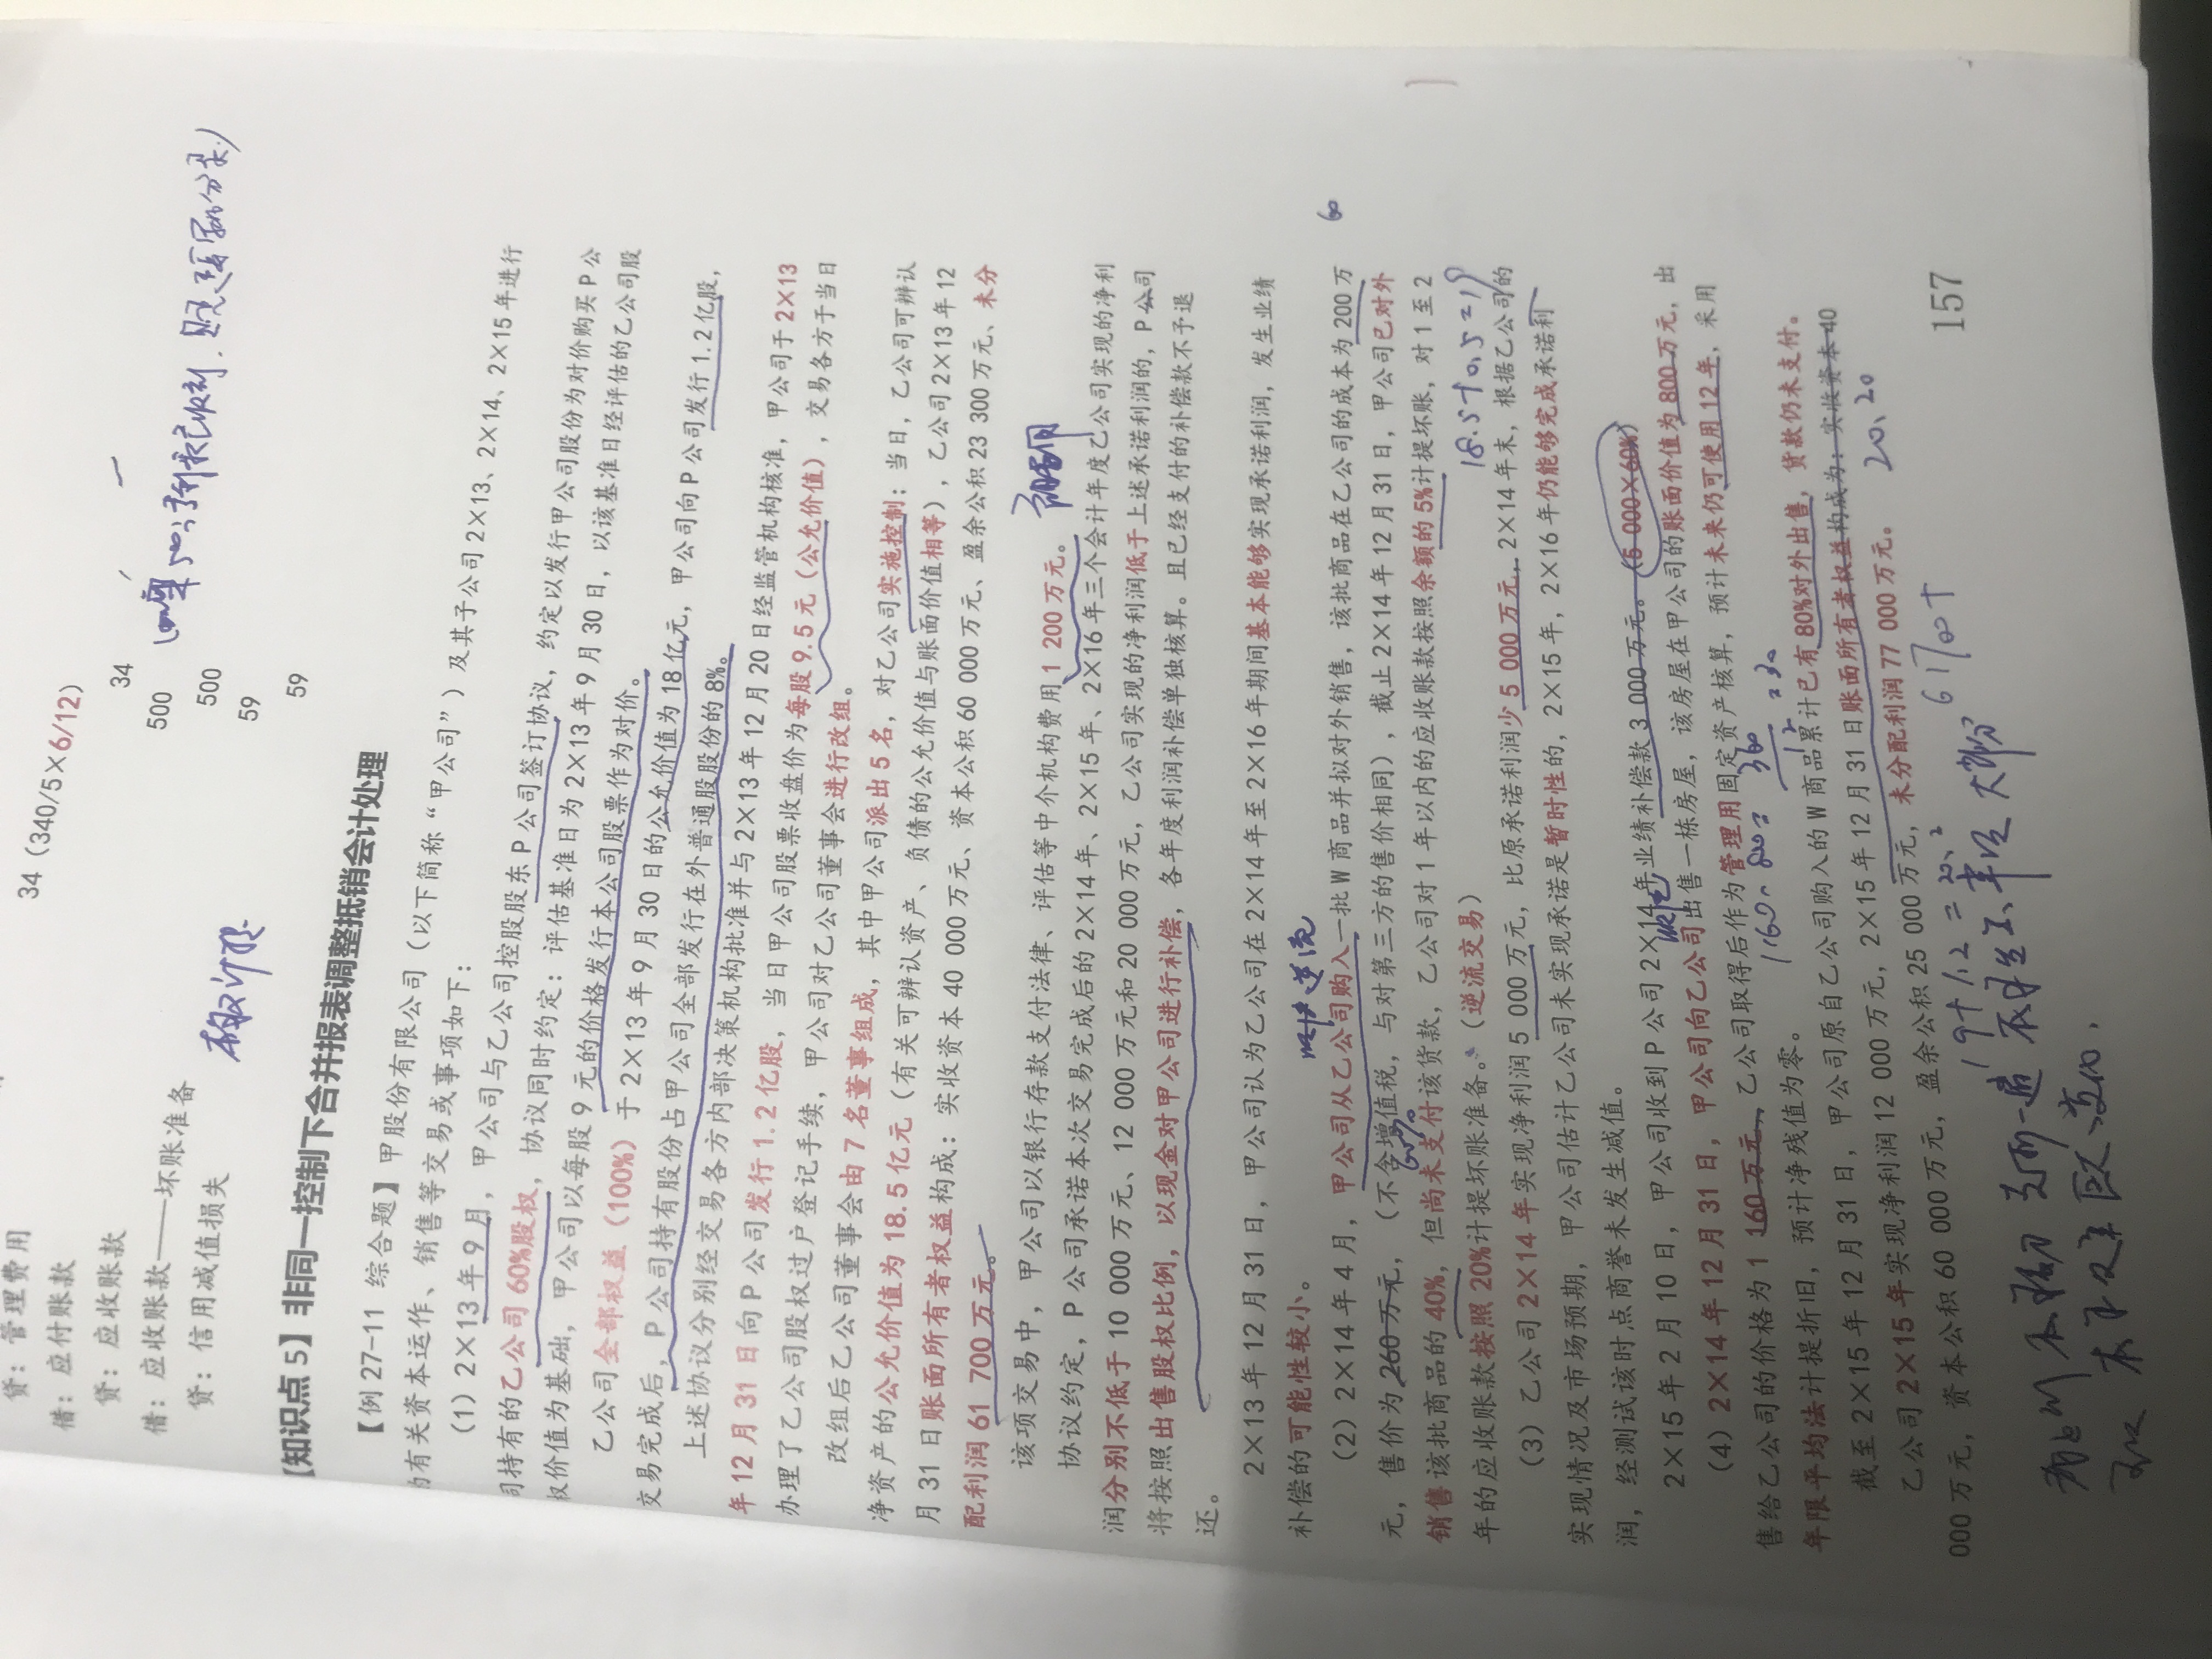 34（340/5×6/12）
贷：管理费用
34
借：应付账款
500
贷：应收账款
500
借：应收账款——坏账准备
59
贷：信用减值损失
59
【知识点 5】非同一控制下合并报表调整抵销会计处理
【例 27-11 综合题】甲股份有限公司（以下简称“甲公司”）及其子公司 2×13、2×14、2×15 年进行
的有关资本运作、销售等交易或事项如下：
（1）2×13 年 9 月，甲公司与乙公司控股股东 P 公司签订协议，约定以发行甲公司股份为对价购买 P 公
司持有的乙公司 60%股权，协议同时约定：评估基准日为 2×13 年 9 月 30 日，以该基准日经评估的乙公司股
权价值为基础，甲公司以每股 9 元的价格发行本公司股票作为对价。
乙公司全部权益（100%）于 2×13 年 9 月 30 日的公允价值为 18 亿元，甲公司向 P 公司发行 1.2 亿股，
交易完成后，P 公司持有股份占甲公司全部发行在外普通股股份的 8%。
上述协议分别经交易各方内部决策机构批准并与 2×13 年 12 月 20 日经监管机构核准，甲公司于 2×13
年 12 月 31 日向 P 公司发行 1.2 亿股，当日甲公司股票收盘价为每股 9.5 元（公允价值），交易各方于当日
办理了乙公司股权过户登记手续，甲公司对乙公司董事会进行改组。
改组后乙公司董事会由 7 名董事组成，其中甲公司派出 5 名，对乙公司实施控制；当日，乙公司可辨认
净资产的公允价值为 18.5 亿元（有关可辨认资产、负债的公允价值与账面价值相等），乙公司 2×13 年 12
月 31 日账面所有者权益构成：实收资本 40 000 万元、资本公积 60 000 万元、盈余公积 23 300 万元、未分
配利润 61 700 万元。
该项交易中，甲公司以银行存款支付法律、评估等中介机构费用 1 200 万元。
协议约定，P 公司承诺本次交易完成后的 2×14 年、2×15 年、2×16 年三个会计年度乙公司实现的净利
润分别不低于 10 000 万元、12 000 万元和 20 000 万元，乙公司实现的净利润低于上述承诺利润的，P 公司
将按照出售股权比例，以现金对甲公司进行补偿，各年度利润补偿单独核算。且已经支付的补偿款不予退
还。
2×13 年 12 月 31 日，甲公司认为乙公司在 2×14 年至 2×16 年期间基本能够实现承诺利润，发生业绩
补偿的可能性较小。
逆流
60
（2）2×14 年 4 月，甲公司从乙公司购入一批 W 商品并拟对外销售，该批商品在乙公司的成本为 200 万
元，售价为 260 万元，（不含增值税，与对第三方的售价相同），截止 2×14 年 12 月 31 日，甲公司已对外
销售该批商品的 40%，但尚未支付该货款，乙公司对 1 年以内的应收账款按照余额的 5%计提坏账，对 1 至 2
年的应收账款按照 20%计提坏账准备。（逆流交易）
18.5+0.5=19
（3）乙公司 2×14 年实现净利润 5 000 万元，比原承诺利润少 5 000 万元，2×14 年末，根据乙公司的
实现情况及市场预期，甲公司估计乙公司未实现承诺是暂时性的，2×15 年，2×16 年仍能够完成承诺利
润，经测试该时点商誉未发生减值。
2×15 年 2 月 10 日，甲公司收到 P 公司 2×14 年业绩补偿款 3 000 万元。（5 000×60%）
（4）2×14 年 12 月 31 日，甲公司向乙公司出售一栋房屋，该房屋在甲公司的账面价值为 800 万元，出
售给乙公司的价格为 1 160 万元，乙公司取得后作为管理用固定资产核算，预计未来仍可使用 12 年，采用
年限平均法计提折旧，预计净残值为零。
截至 2×15 年 12 月 31 日，甲公司原自乙公司购入的 W 商品累计已有 80%对外出售，货款仍未支付。
乙公司 2×15 年实现净利润 12 000 万元，2×15 年 12 月 31 日账面所有者权益构成为：实收资本 40
000 万元，资本公积 60 000 万元，盈余公积 25 000 万元，未分配利润 77 000 万元。
19+1.2=20.2
61700+
157